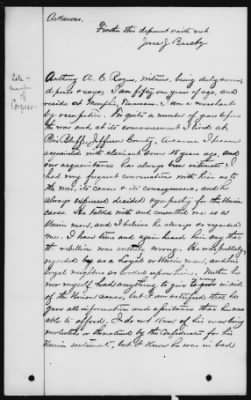 Arkansas.
Further this deponent saith not
Anthony A. C. Rogers, witness, being duly sworn,
deposes & says: I am fifty years of age, and
reside at Memphis, Tennessee. I am a merchant
by occupation. For quite a number of years before
the war and at its commencement I lived at
Pine Bluff, Jefferson County, Arkansas. I became
acquainted with claimant some years ago, and
our acquaintance has always been intimate. I
had very frequent conversations with him as to
the war, its causes & its consequences, and he
always expressed decided sympathy for the Union
cause. He talked with and consulted me as a
Union man, and I believe he always so regarded
me. I knew him and again heard him say that
the rebellion was wrong. He was publicly
regarded as a loyal or Union man, and his
loyal neighbors so looked upon him. Neither he
nor myself had anything to give in aid
of the Union cause, but I am satisfied that he
gave all information and assistance that he was
able to afford. I do not know of his ever being
molested or threatened by the Confederates for his
Union sentiments, but I know he was in bad